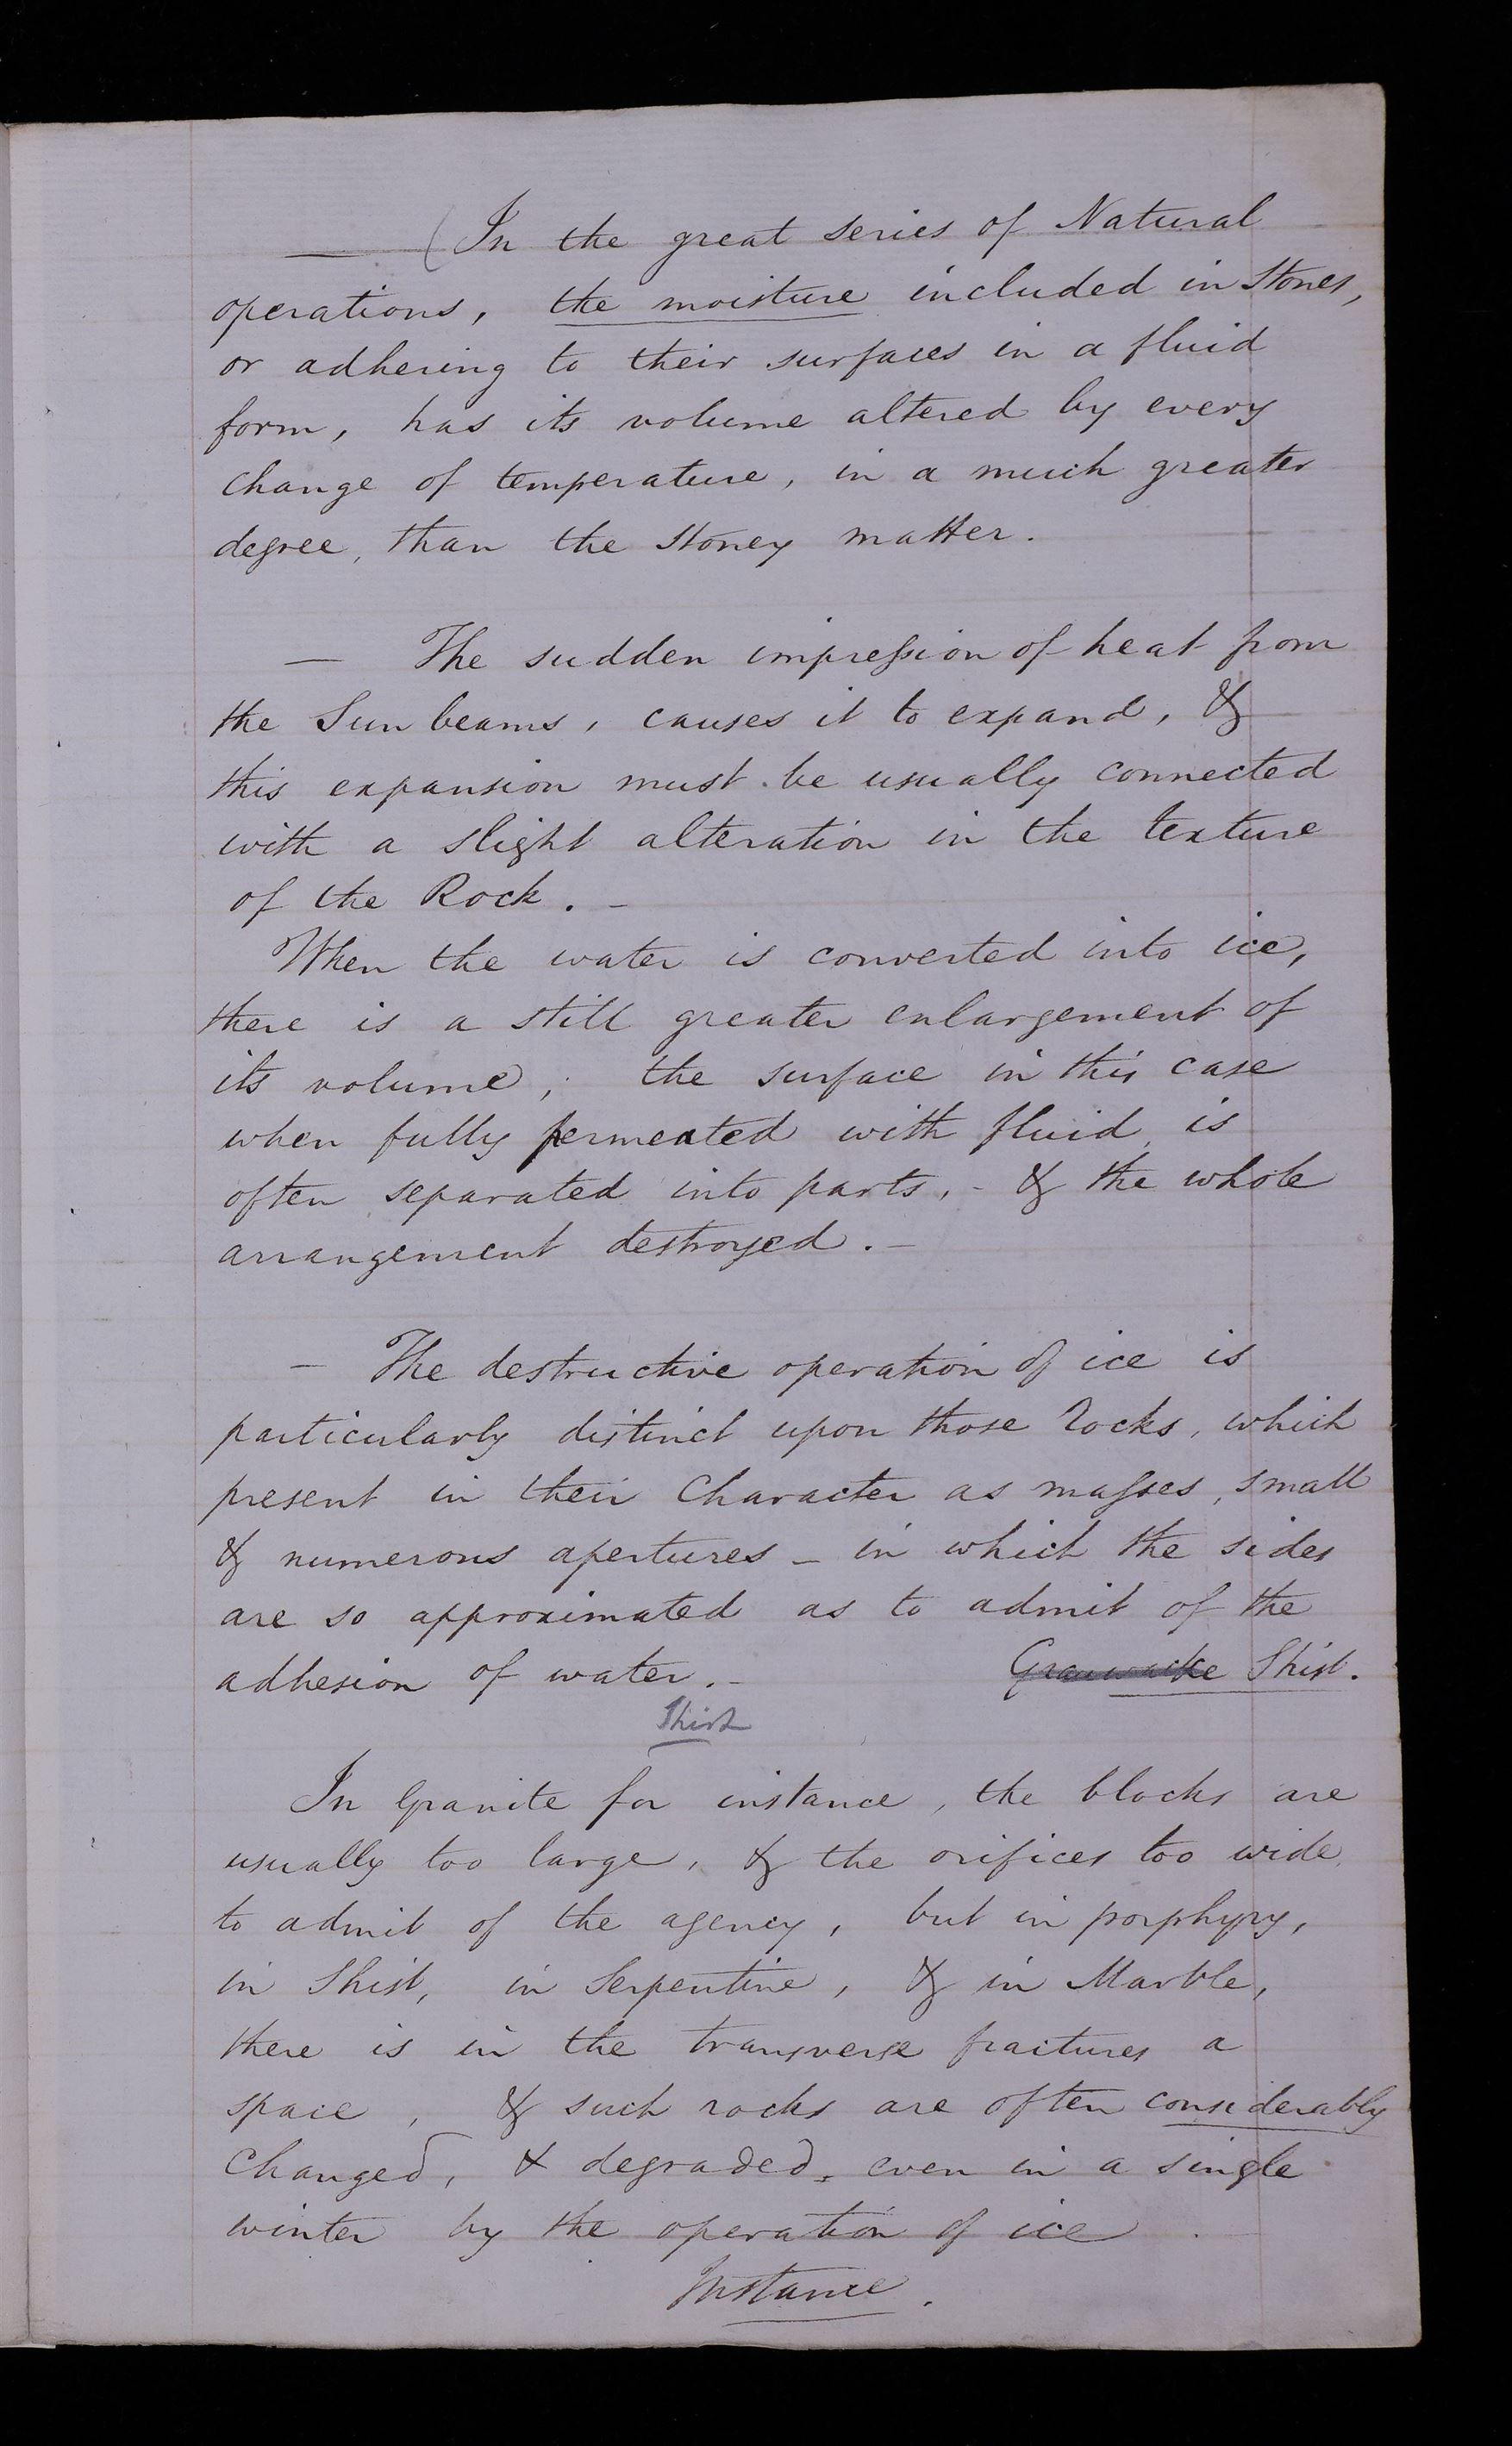 — (In the great series of Natural
operations, the moisture included in Stones,
or adhering to their surfaces in a fluid
form, has its volume altered by every
change of temperature, in a much greater
degree, than the Stoney matter.
— The sudden impression of heat from
the Sun beams, causes it to expand, &
this expansion must be usually connected
with a slight alteration in the texture
of the Rock. –
When the water is converted into ice,
there is a still greater enlargement of
its volume; the surface in this case
when fully permeated with fluid, is
often separated into parts, - & the whole
arrangement destroyed. –
– The destructive operation of ice is
particularly distinct upon those Rocks, which
present in their Character as masses, small
& numerous apertures – in which the sides
are so approximated as to admit of the
adhesion of water. – Grauwacke Shist.
Shist
In Granite for instance, the blocks are
usually too large, & the orifices too wide
to admit of the agency, but in porphyry,
in Shist, in Serpentine, & in Marble,
there is in the transverse fractures a
space, & such rocks are often considerably
Changed, & degraded, even in a single
winter by the operation of ice.
Instance.